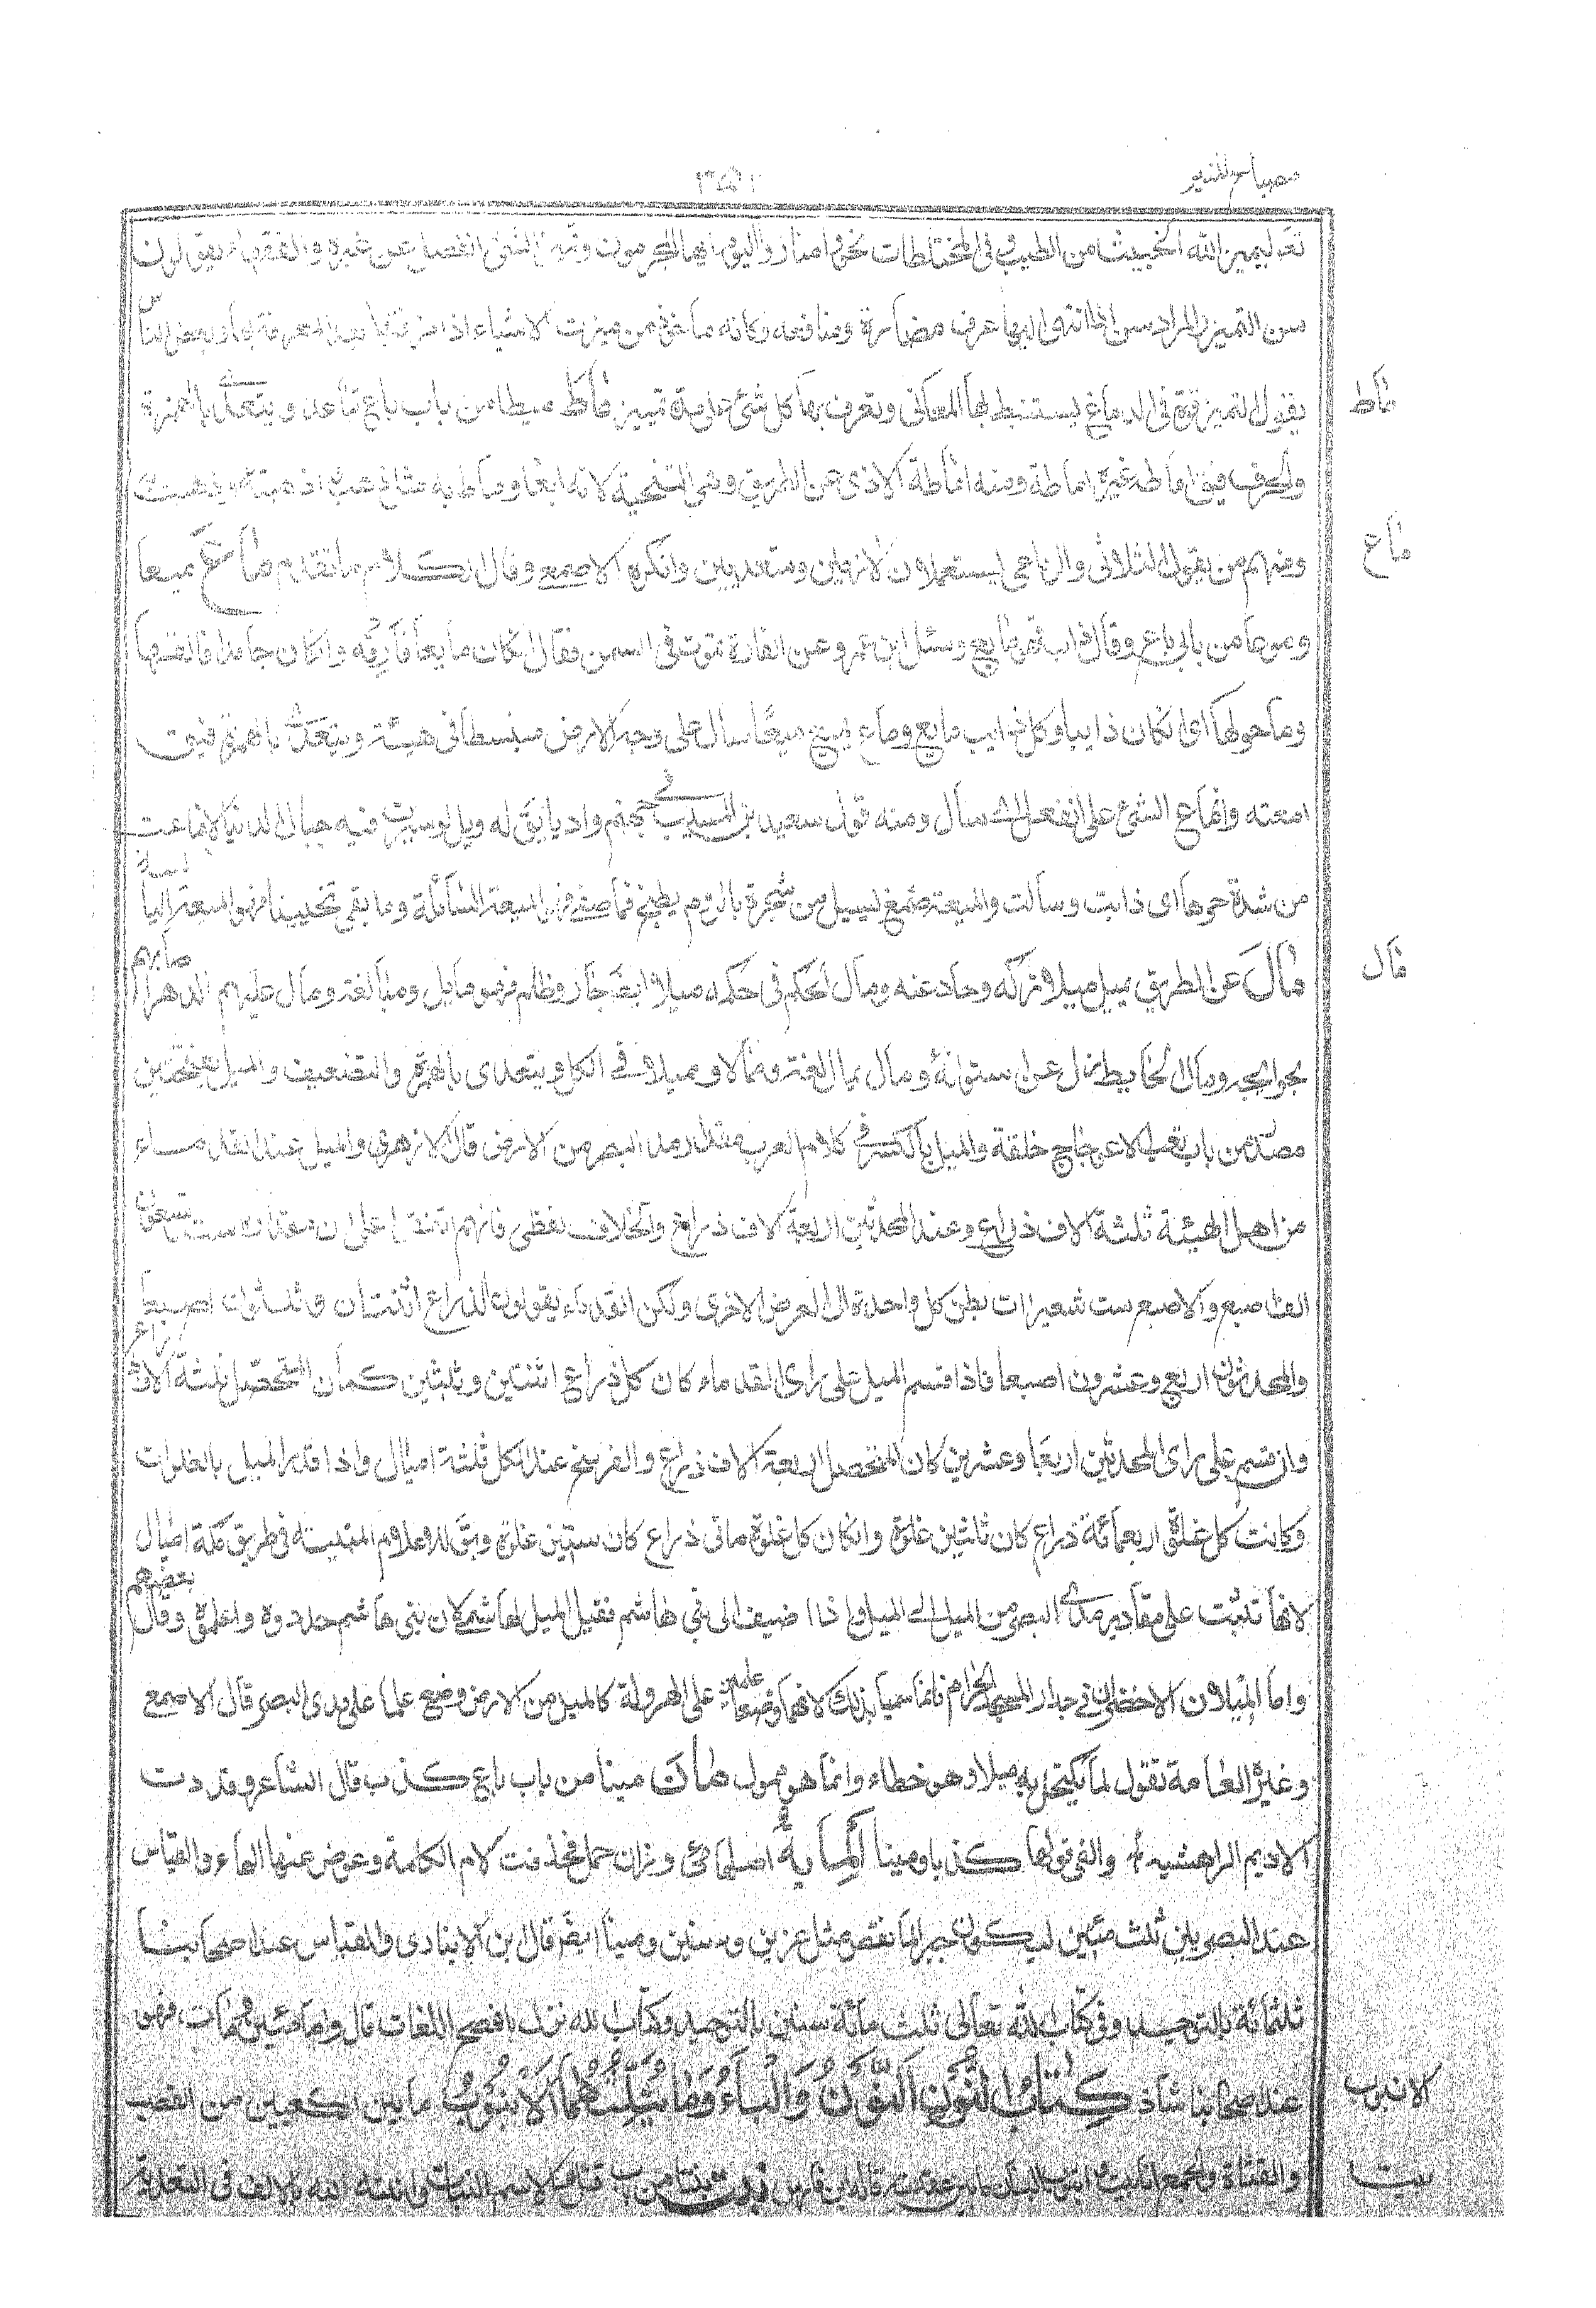 مصباح المنير
تعالى ليميز الله الخبيث من الطيب وفى المختلطات نحو وامتازوا اليوم ايها المجرمون وتميز الشئ انفصل عن غيره والفقهاء يقولون
سن التميز والمراد سن اذا انتهى اليها عرف مضاره ومنافعه وكانه ماخوذ من ميزت الاشياء اذا فرقتها بعد المعرفة بها وبعض الناس
يقول التميز قوة فى الدماغ يستنبط بها المعانى وتعرف بها كل شئ على حدة تمييز ماط ميطا من باب باع تباعد ويتعدى بالهمزة
والحرف فيق اماطه غيره اماطة ومنه اماطة الاذى عن الطريق وهى التنحية لانه ابعاد وماط به مثل ذهب به اذهبته وذهبت
ومنهم من يقول الثلاثى والرباعى يستعملان لازمين ومتعديين وانكره الاصمعى وقال الكلام ما تقدم ماع ميعا
وموعا من بابى باع وقال ذاب فهو مايع وسئل ابن عمر عن الفارة تموت فى السمن فقال ان كان مايعا فارقه وان كان جامدا فالقها
وما حولها اى ان كان ذايبا وكل ذايب مايع وماع يميع ميعا سال على وجه الارض منبسطا فى هيئة ويتعدى بالهمزة فيق
امعته وانماع الشئ على انفعل اى سال ومنه قول سعيد بن المسيب فى جهنم واد يا يق له ويل لو سيرت فيه جبال الدنيا لانماعت
من شدة حرها اى ذابت وسالت والميعة صمغ يسيل من شجرة بالروم يطبخ فما صفى فهو الميعة السائلة وما بقى ثخينا فهو الميعة اليابسة
مال عن الطريق يميل ميلا تركه وحاد عنه ومال الحاكم فى حكمه ميلا ايض جار وظلم فهو مايل وميال لغة ومال عليهم الدهر اصابهم
بجوايحه ومال الحايط زال عن استوائه ومال يمال لغة وممالا ومميلا فى الكل ويتعدى بالهمزة والتضعيف والميل بفتحتين
مصدر من باب تعب الاعوجاج خلقة والميل بالكسر فى كلام العرب مقدار مد البصر من الارض قال الازهرى والميل عند القدماء
من اهل الهيئة ثلثة الاف ذراع وعند المحدثين اربعة الاف ذراع والخلاف لفظى فانهم اتفقوا على ان مقداره ست وتسعون
الف اصبع والاصبع ست شعيرات بطن كل واحدة الى العرض الاخرى ولكن القدماء يقولون الذراع اثنتان وثلثون اصبعا
والمحدثون اربع وعشرون اصبعا فاذا قسم الميل على راى القدماء كان كل ذراع اثنتين وثلثين كان المتحصل ثلثة الاف ذراع
وان قسم على راى المحدثين اربعا وعشرين كان المتحصل اربعة الاف ذراع والفرسخ عند الكل ثلثة اميال واذا قدر الميل بالغلوات
وكانت كل غلوة اربعمائة ذراع كان ثلثين غلوة وان كان كل غلوة مائى ذراع كان ستين غلوة ويق للاعلام المبنية فى طريق مكة اميال
لانها تثبت على مقادير مدى البصر من الميل الى الميل واذا اضيف الى بنى هاشم فقيل الميل الهاشمى لان بنى هاشم حددوه واعلموه وقال بعضهم
واما الميلان الاخضران فى جدار المسجد الحرام فانما سميا بذلك لانهما وضعا علمين على الهرولة كالميل من الارض وضع علما على مدى البصر قال الاصمعى
وغيره العامة تقول لما يكتحل به ميلا وهو خطاء وانما هو ملمول مان مينا من باب باع كذب قال الشاعر وقددت
الاديم لراهشيه + والفى قولها كذبا ومينا المائة اصلها مئى وزان حمل فحذفت لام الكلمة وعوض عنها الهاء والقياس
عند البصريين ثلث مئين ليكون جبرا لما نقص مثل عزين وسنين ومئين ايض قال ابن الانبارى والقياس عند اصحابنا
ثلثمائة بالتوحيد وفى كتاب الله تعالى ثلث مائة سنين بالتوحيد وكتاب الله نزل بافصح اللغات قال واما مئين ومئات فهو
عند اصحابنا شاذ كتاب النون النون والباء وما يثلثهما الانبوب ما بين الكعبين من القصب
والقناة والجمع انابيب وانبوب النبات ما بين عقدتيه قاله ابن فارس نبت نبتا من باب قتل والاسم النبات وانبته الله بالالف فى التعدية
ماط
ماع
مال
الانبوب
نبت